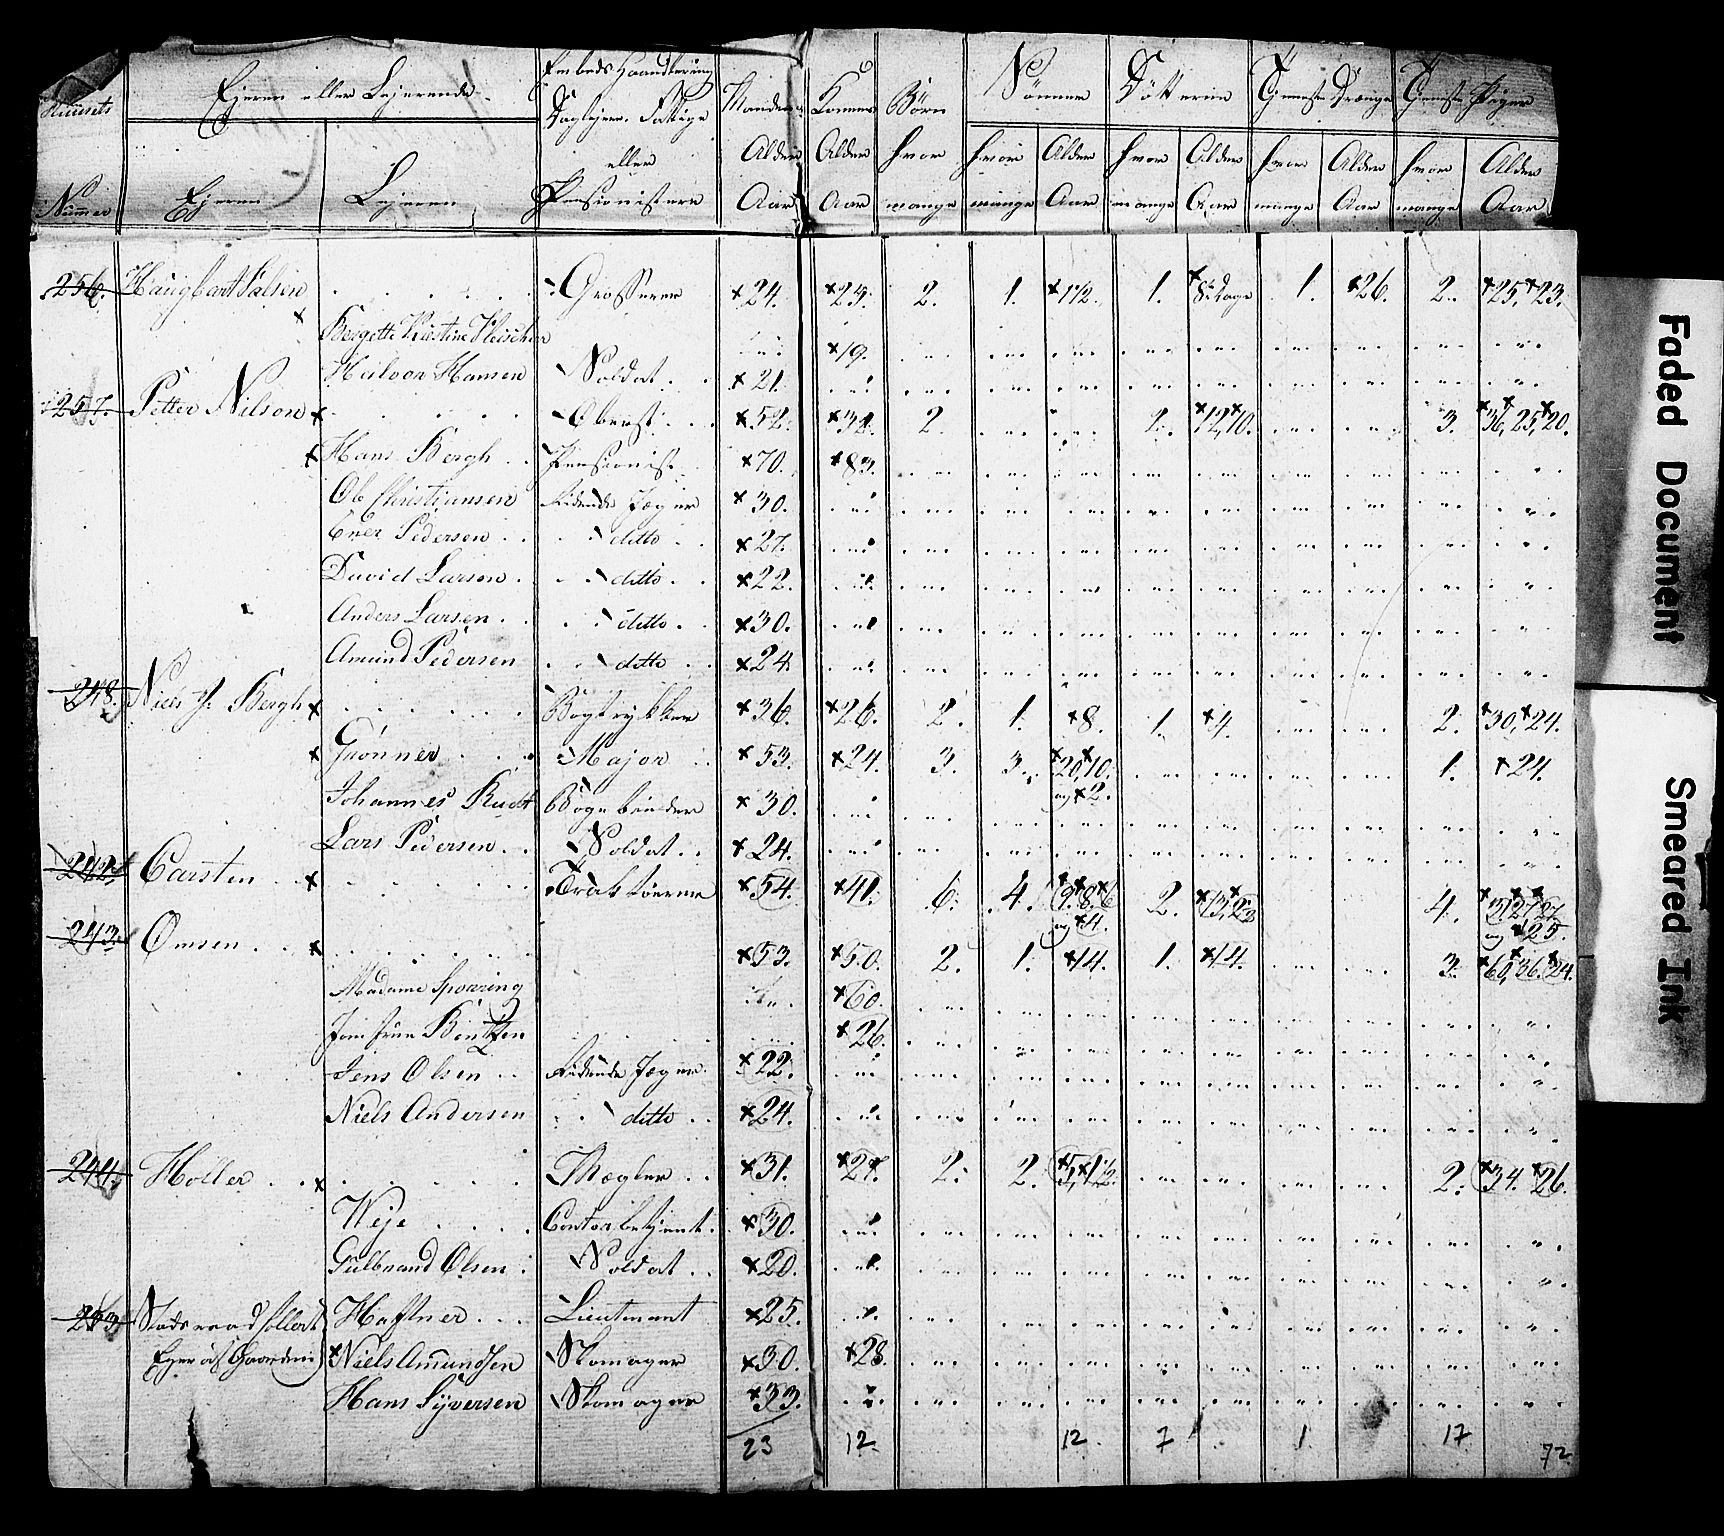 Huusets Nummer | Ejeren eller Lejerende | Embeds Haandtering Daglejere, Fattige eller Pensionistere | Mandens Alder Aar | Konens Alder Aar | Børn hvor mange | Sønner | Døtterne | Tjeneste Drænge | Tjeneste Piger
Ejeren | Lejeren | hvor mange | Alder Aar | hvor mange | Alder Aar | hvor mange | Alder Aar | hvor mange | Alder Aar
256. Haugbart Salsen | Grosserer | 24. | 29. | 2. | 1. | 1½. | 1. | 8 Dage | 1. | 26. | 2. | 25, 23.
Bergette Kirstine Fleischer | 19.
Halvor Hansen | Soldat | 21.
257. Petter Nilson | Oberst | 52. | 32. | 2. | 2. | 12, 10. | 3. | 36, 25, 20.
Hans Bergh | Pensionist | 70. | 83.
Ole Christiansen | Ridende Jæger | 30.
Ener Pedersen | ditto | 27.
David Larsen | ditto | 22.
Anders Larsen | ditto | 30.
Amund Pedersen | ditto | 24.
248. Niels J. Bergh | Bogtrykker | 36. | 26. | 2. | 1. | 8. | 1. | 4. | 2. | 30, 24.
Grønner | Major | 53. | 24. | 3. | 3. | 20, 10.
og 2. | 1. | 24.
Johannes Rudt | Bogebinder | 30.
Lars Pedersen | Soldat | 24.
242. Carsten | Traktørerer | 54. | 41. | 6. | 4. | 9. 8. 6
og 4. | 2. | 13, 23 | 4. | 27, 27
og 25.
243. Omsen | 53. | 50. | 2. | 1. | 14. | 1. | 14. | 3. | 60, 36, 24.
Madame Sporring | 60.
Jomfrue Bentzen | 26.
Jens Olsen | Ridende Jæger | 22.
Niels Andersen | ditto | 24.
244. Holler | Mægler | 31. | 27. | 2. | 2. | 5, 1½. | 2. | 34. 26.
Weje | Contorbetjent | 30.
Gulbrand Olsen | Soldat | 20.
253. Stadsraad Collett | Haftner | Lieutenant | 25.
Ejer af Gaarden) | Niels Amundsen | Skomager | 30. | 28.
Hans Syversen | Skomager | 33.
23 | 12. | 12. | 7 | 1 | 17 | 72
Faded Document
Smeared Ink